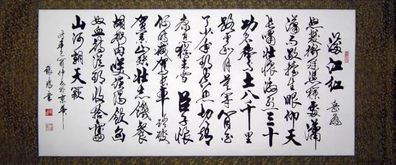 滿江紅 岳飛
怒髮衝冠憑欄處瀟
瀟雨歇抬望眼仰天
長嘯壯懷激烈三十
功名塵與土八千里
路雲和月莫等閒白
了少年頭空悲切靖
康恥猶未雪臣子恨
何時滅駕長車踏破
賀蘭山缺壯志飢餐
胡虜肉笑談渴飲匈
奴血待從頭收拾舊
山河朝天闕